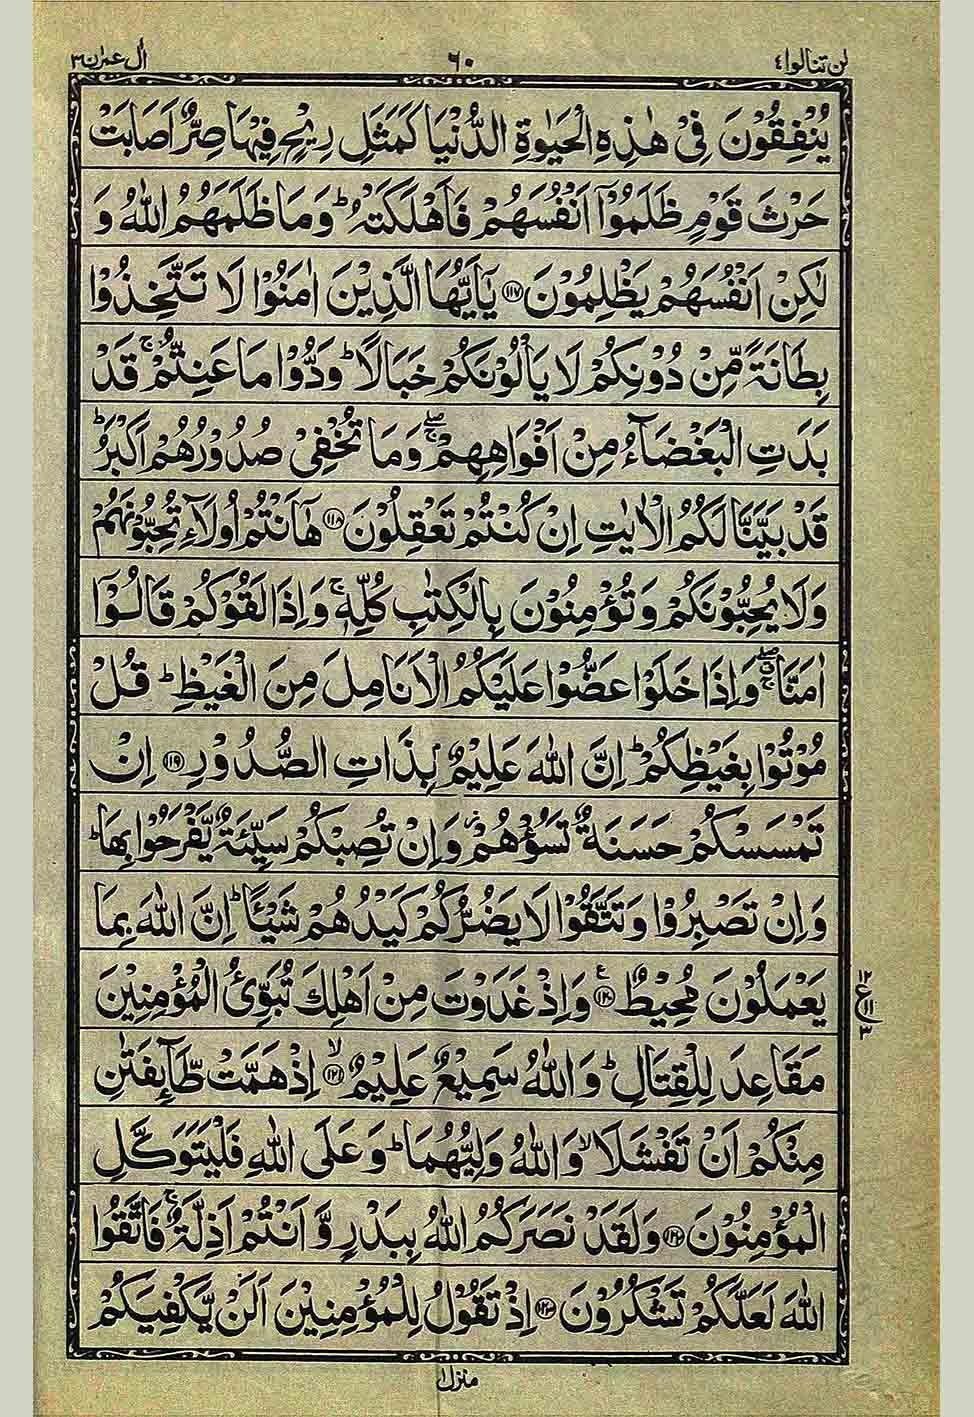 لن تنالوا ٤ ٦٠ اٰل عمرٰن ٣
يُنْفِقُوْنَ فِيْ هٰذِهِ الْحَيٰوةِ الدُّنْيَا كَمَثَلِ رِيْحٍ فِيْهَا صِرٌّ اَصَابَتْ
حَرْثَ قَوْمٍ ظَلَمُوْۤا اَنْفُسَهُمْ فَاَهْلَكَتْهُ ؕ وَمَا ظَلَمَهُمُ اللّٰهُ وَ
لٰكِنْ اَنْفُسَهُمْ يَظْلِمُوْنَ ﴿۱۱۷﴾ يٰۤاَيُّهَا الَّذِيْنَ اٰمَنُوْا لَا تَتَّخِذُوْا
بِطَانَةً مِّنْ دُوْنِكُمْ لَا يَاْلُوْنَكُمْ خَبَالًا ؕ وَدُّوْا مَا عَنِتُّمْ ۚ قَدْ
بَدَتِ الْبَغْضَآءُ مِنْ اَفْوَاهِهِمْ ۖۚ وَمَا تُخْفِيْ صُدُوْرُهُمْ اَكْبَرُ ؕ
قَدْ بَيَّنَّا لَكُمُ الْاٰيٰتِ اِنْ كُنْتُمْ تَعْقِلُوْنَ ﴿۱۱۸﴾ هٰۤاَنْتُمْ اُولَآءِ تُحِبُّوْنَهُمْ
وَلَا يُحِبُّوْنَكُمْ وَتُؤْمِنُوْنَ بِالْكِتٰبِ كُلِّهٖ ۚ وَاِذَا لَقُوْكُمْ قَالُوْۤا
اٰمَنَّا ۖۚ وَاِذَا خَلَوْا عَضُّوْا عَلَيْكُمُ الْاَنَامِلَ مِنَ الْغَيْظِ ؕ قُلْ
مُوْتُوْا بِغَيْظِكُمْ ؕ اِنَّ اللّٰهَ عَلِيْمٌۢ بِذَاتِ الصُّدُوْرِ ﴿۱۱۹﴾ اِنْ
تَمْسَسْكُمْ حَسَنَةٌ تَسُؤْهُمْ ؗ وَاِنْ تُصِبْكُمْ سَيِّئَةٌ يَّفْرَحُوْا بِهَا ؕ
وَاِنْ تَصْبِرُوْا وَتَتَّقُوْا لَا يَضُرُّكُمْ كَيْدُهُمْ شَيْـًٔا ؕ اِنَّ اللّٰهَ بِمَا
يَعْمَلُوْنَ مُحِيْطٌ ﴿۱۲۰﴾ ع وَاِذْ غَدَوْتَ مِنْ اَهْلِكَ تُبَوِّئُ الْمُؤْمِنِيْنَ
۱۲ ع ۱۱ ۳
مَقَاعِدَ لِلْقِتَالِ ؕ وَاللّٰهُ سَمِيْعٌ عَلِيْمٌ ﴿۱۲۱﴾ ۙ اِذْ هَمَّتْ طَّآىِٕفَتٰنِ
مِنْكُمْ اَنْ تَفْشَلَا ۙ وَاللّٰهُ وَلِيُّهُمَا ؕ وَعَلَى اللّٰهِ فَلْيَتَوَكَّلِ
الْمُؤْمِنُوْنَ ﴿۱۲۲﴾ وَلَقَدْ نَصَرَكُمُ اللّٰهُ بِبَدْرٍ وَّاَنْتُمْ اَذِلَّةٌ ۚ فَاتَّقُوا
اللّٰهَ لَعَلَّكُمْ تَشْكُرُوْنَ ﴿۱۲۳﴾ اِذْ تَقُوْلُ لِلْمُؤْمِنِيْنَ اَلَنْ يَّكْفِيَكُمْ
منزل ١